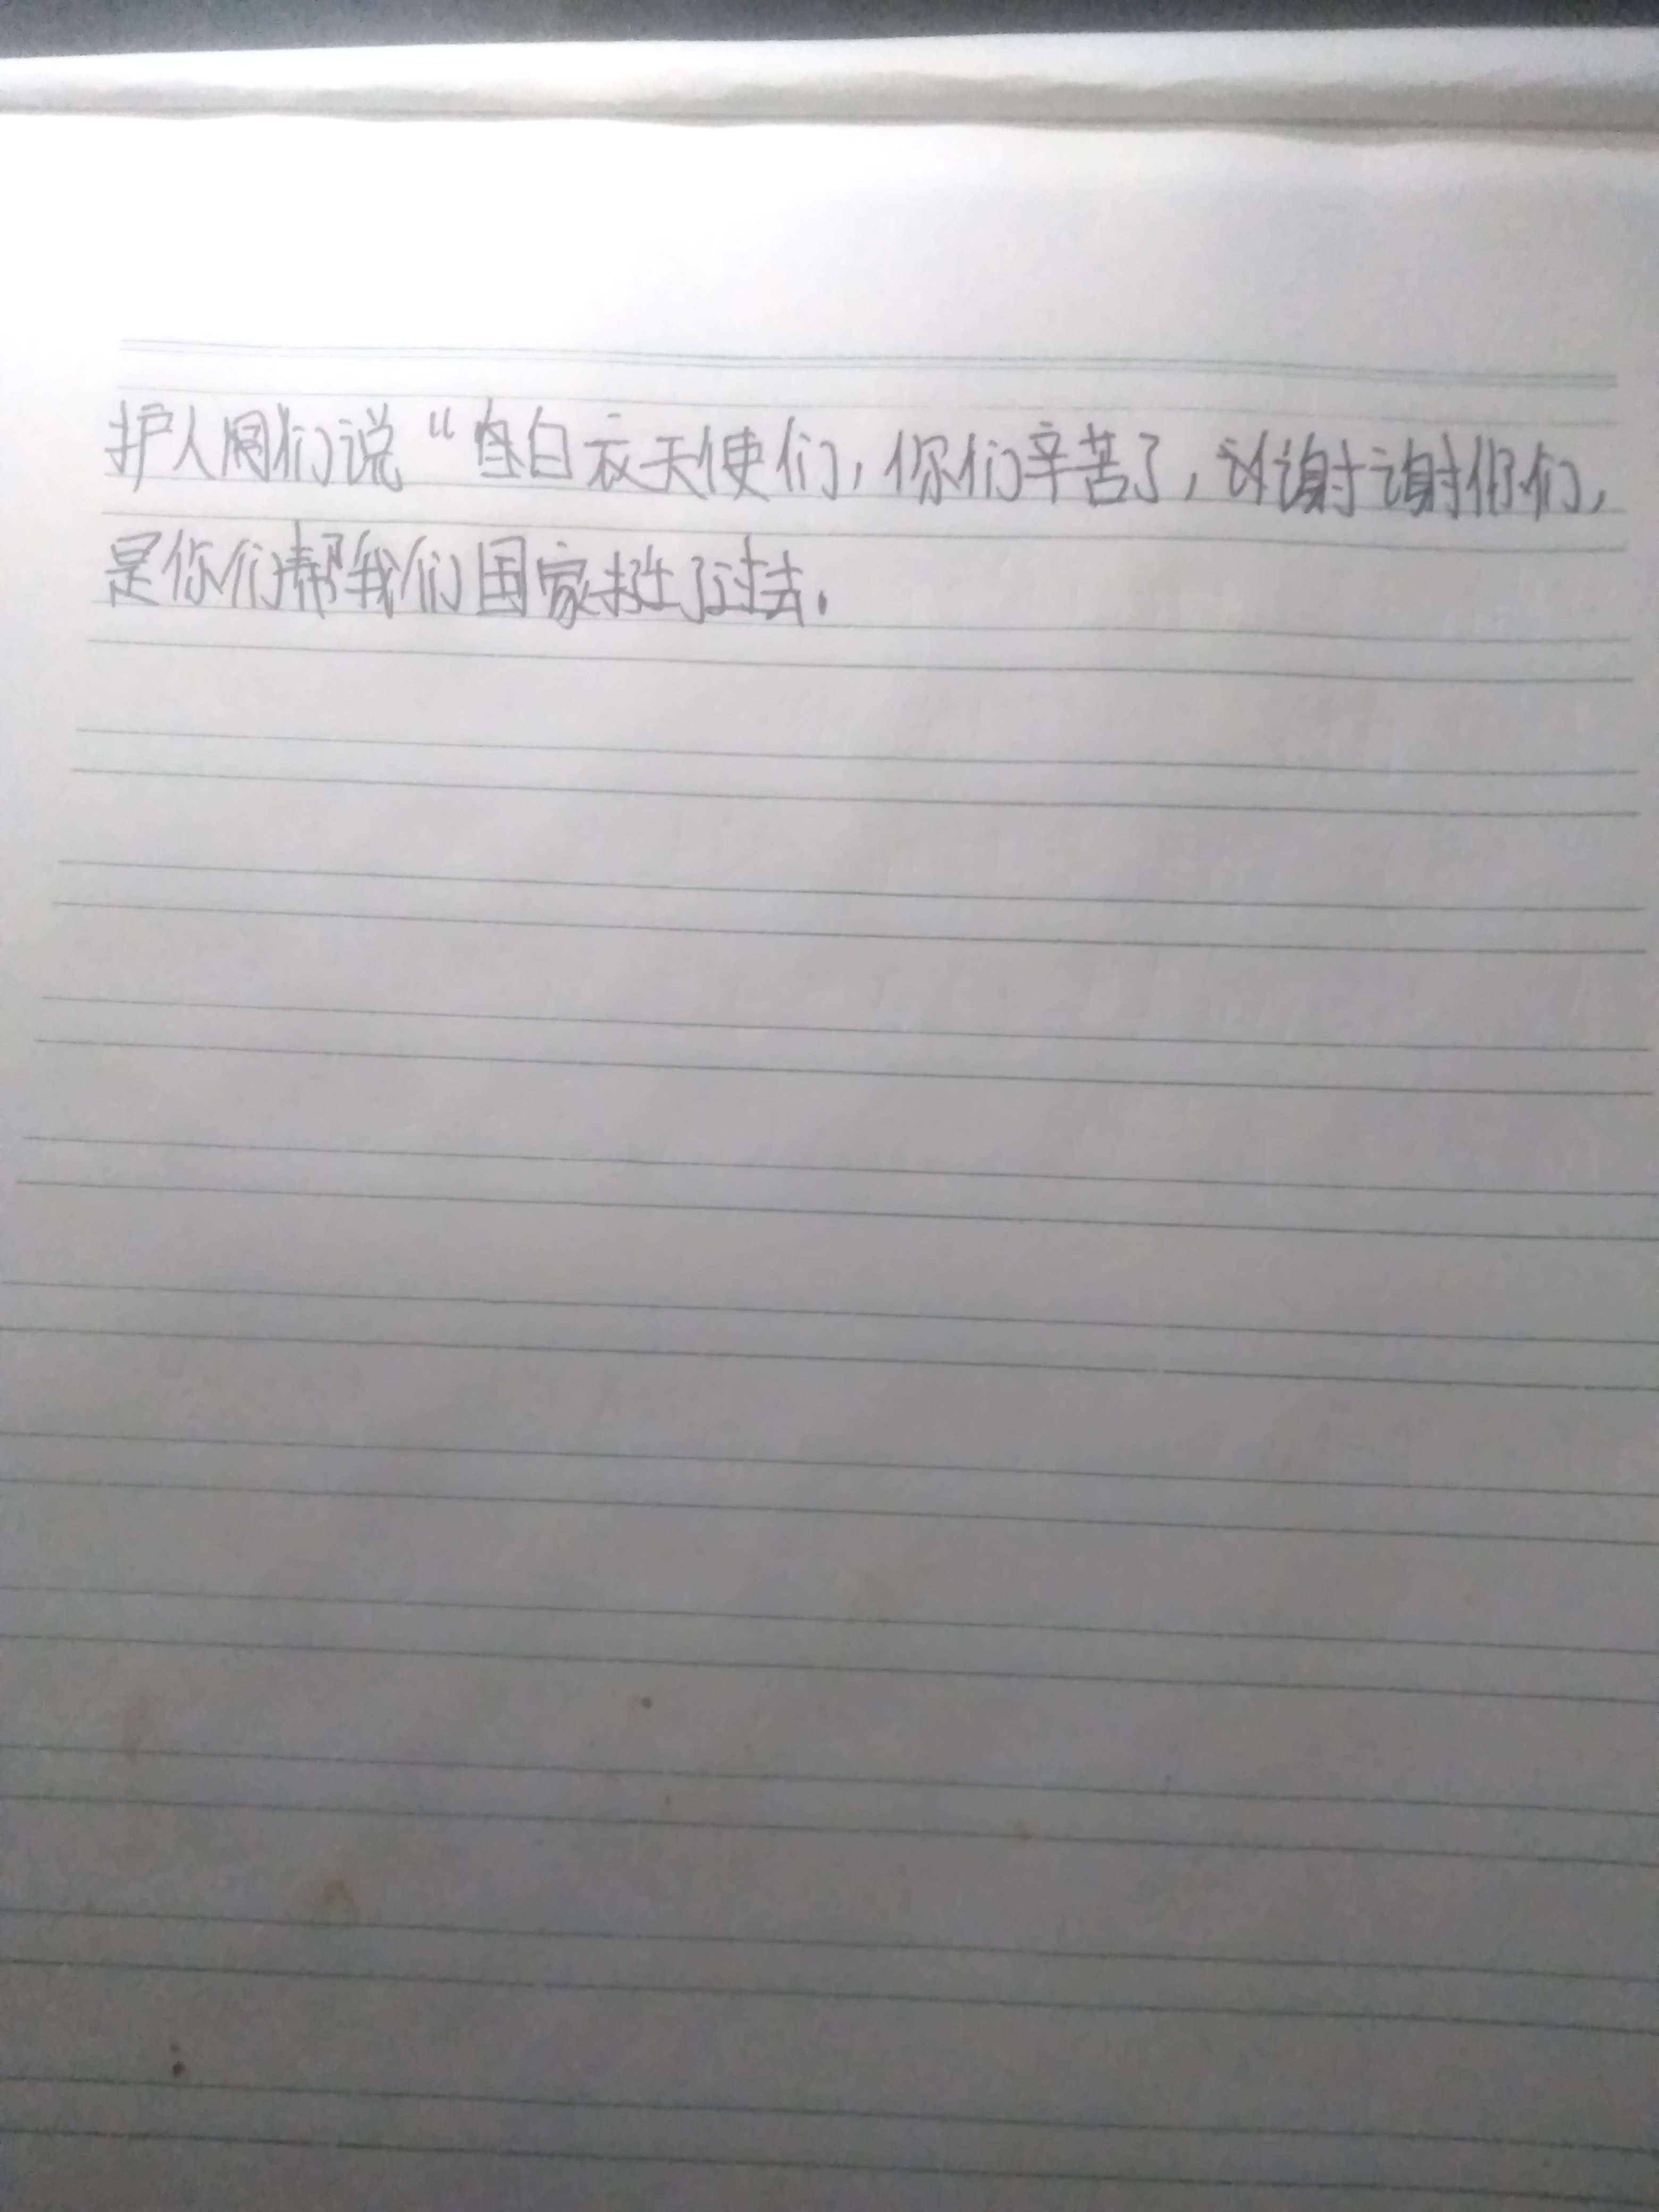 护人员们说“白衣天使们，你们辛苦了，谢谢你们，
是你们帮我们国家挺了过去．